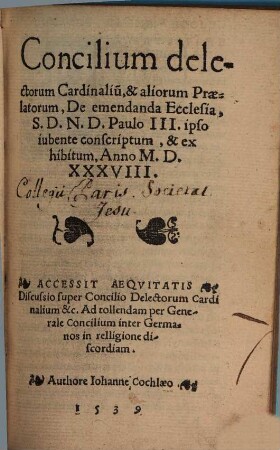 Concilium dele-
ctorum Cardinaliũ, & aliorum Præ-
latorum, De emendanda Ecclesia,
S. D. N. D. Paulo III. ipso
iubente conscriptum, & ex
hibitum, Anno M. D.
XXXVIII.
Collegii Paris. Societat.
Jesu.
ACCESSIT AEQVITATIS
Discussio super Concilio Delectorum Cardi
nalium &c. Ad tollendam per Gene-
rale Concilium inter Germa-
nos in relligione di-
scordiam.
Authore Iohanne Cochlæo
1539